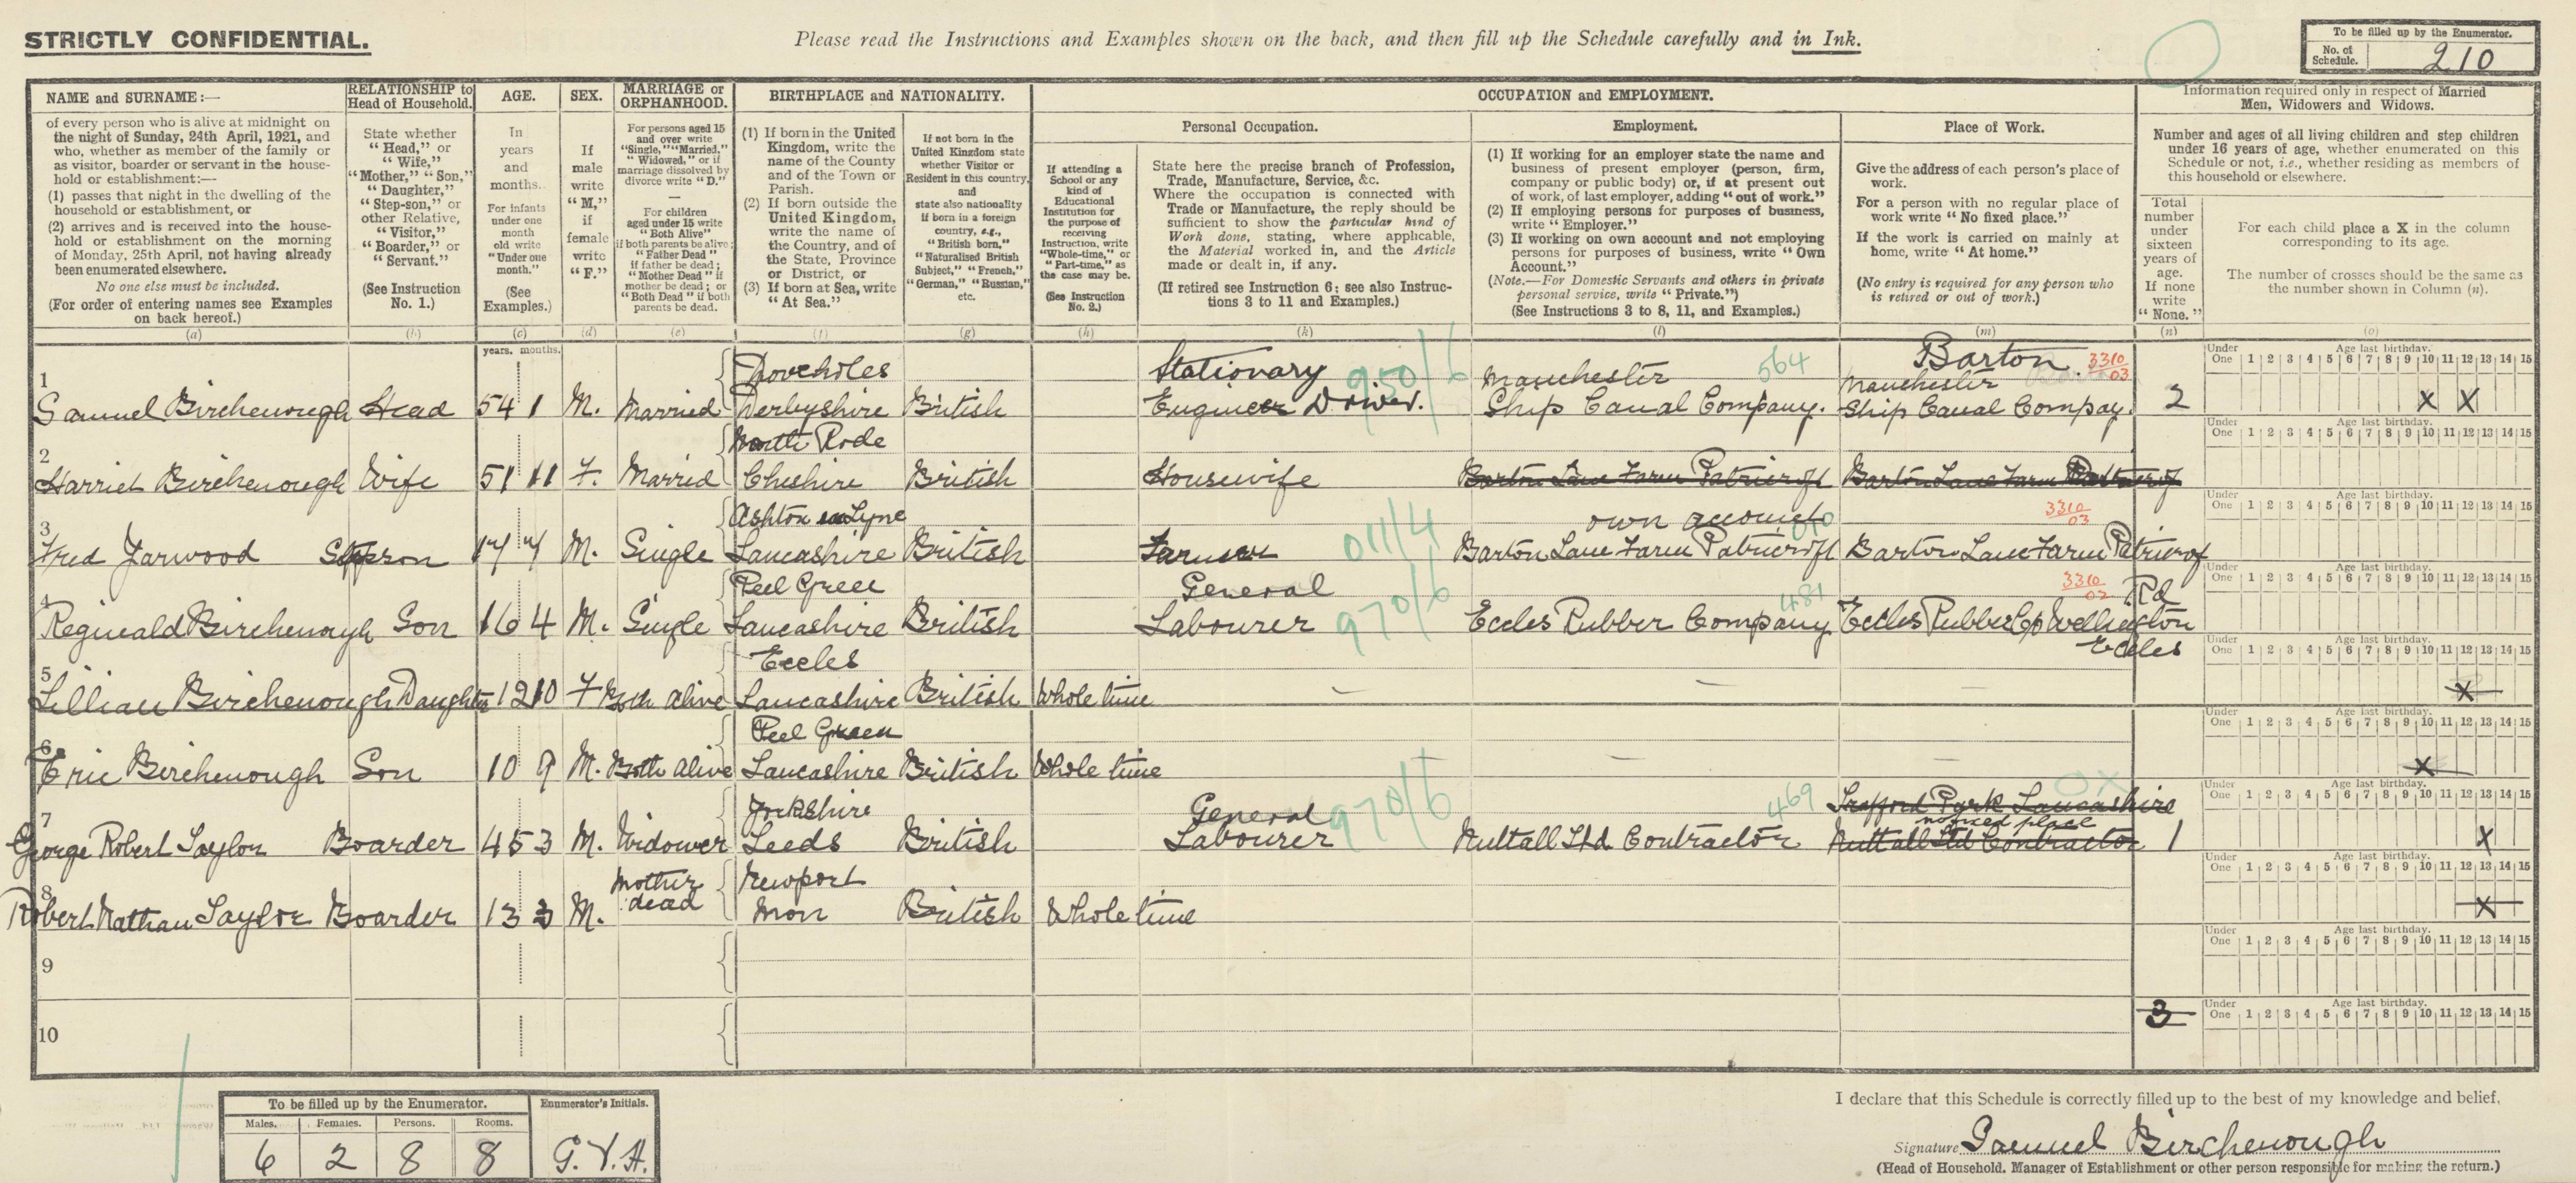 STRICTLY CONFIDENTIAL.
Please read the Instructions and Examples shown on the back, and then fill up the Schedule carefully and in Ink.
To be filled up by the Enumerator.
No. of Schedule. 210
NAME and SURNAME:—
of every person who is alive at midnight on
the night of Sunday, 24th April, 1921, and
who, whether as member of the family or
as visitor, boarder or servant in the house-
hold or establishment:—
(1) passes that night in the dwelling of the
household or establishment, or
(2) arrives and is received into the house-
hold or establishment on the morning
of Monday, 25th April, not having already
been enumerated elsewhere.
No one else must be included.
(For order of entering names see Examples
on back hereof.)
(a)
RELATIONSHIP to
Head of Household.
State whether
"Head," or
"Wife,"
"Mother," "Son,"
"Daughter,"
"Step-son," or
other Relative,
"Visitor,"
"Boarder," or
"Servant."
(See Instruction
No. 1.)
(b)
AGE.
In
years
and
months.
For infants
under one
month
old write
"Under one
month."
(See
Examples.)
(c)
SEX.
If
male
write
"M,"
if
female
write
"F."
(d)
MARRIAGE or
ORPHANHOOD.
For persons aged 15
and over write
"Single," "Married,"
"Widowed," or if
marriage dissolved by
divorce write "D."
—
For children
aged under 15 write
"Both Alive"
if both parents be alive;
"Father Dead"
if father be dead;
"Mother Dead" if
mother be dead; or
"Both Dead" if both
parents be dead.
(e)
BIRTHPLACE and NATIONALITY.
(1) If born in the United
Kingdom, write the
name of the County
and of the Town or
Parish.
(2) If born outside the
United Kingdom,
write the name of
the Country, and of
the State, Province
or District, or
(3) If born at Sea, write
"At Sea."
(f)
If not born in the
United Kingdom state
whether Visitor or
Resident in this country,
and
state also nationality
if born in a foreign
country, e.g.,
"British born,"
"Naturalised British
Subject," "French,"
"German," "Russian,"
etc.
(g)
OCCUPATION and EMPLOYMENT.
Personal Occupation.
If attending a
School or any
kind of
Educational
Institution for
the purpose of
receiving
Instruction, write
"Whole-time," or
"Part-time," as
the case may be.
(See Instruction
No. 2.)
(h)
State here the precise branch of Profession,
Trade, Manufacture, Service, &c.
Where the occupation is connected with
Trade or Manufacture, the reply should be
sufficient to show the particular kind of
Work done, stating, where applicable,
the Material worked in, and the Article
made or dealt in, if any.
(If retired see Instruction 6; see also Instruc-
tions 3 to 11 and Examples.)
(k)
Employment.
(1) If working for an employer state the name and
business of present employer (person, firm,
company or public body) or, if at present out
of work, of last employer, adding "out of work."
(2) If employing persons for purposes of business,
write "Employer."
(3) If working on own account and not employing
persons for purposes of business, write "Own
Account."
(Note.—For Domestic Servants and others in private
personal service, write "Private.")
(See Instructions 3 to 8, 11, and Examples.)
(l)
Place of Work.
Give the address of each person's place of
work.
For a person with no regular place of
work write "No fixed place."
If the work is carried on mainly at
home, write "At home."
(No entry is required for any person who
is retired or out of work.)
(m)
Information required only in respect of Married
Men, Widowers and Widows.
Number and ages of all living children and step children
under 16 years of age, whether enumerated on this
Schedule or not, i.e., whether residing as members of
this household or elsewhere.
Total
number
under
sixteen
years of
age.
If none
write
"None."
(n)
For each child place a X in the column
corresponding to its age.
The number of crosses should be the same as
the number shown in Column (n).
(o)
years. months.
Under One Age last birthday. 1 2 3 4 5 6 7 8 9 10 11 12 13 14 15
Doveholes Stationary 950/6 Manchester 564 Barton. 3310/03 Manchester
1 Samuel Birchenough Head 54 1 M. Married Derbyshire British Engineer Driver. Ship Canal Company. Ship Canal Compay. 2 X X
Under One Age last birthday. 1 2 3 4 5 6 7 8 9 10 11 12 13 14 15
North Rode
2 Harriet Birchenough Wife 51 11 F. Married Cheshire British Housewife Barton Lane Farm Patricroft Barton Lane Farm Patricroft
Under One Age last birthday. 1 2 3 4 5 6 7 8 9 10 11 12 13 14 15
Ashton on Lyne 011/4 own account 010 3310/03
3 Fred Yarwood Stepson 17 7 M. Single Lancashire British Farmer Barton Lane Farm Patricroft Barton Lane Farm Patricrof
Under One Age last birthday. 1 2 3 4 5 6 7 8 9 10 11 12 13 14 15
Peel Green General 970/6 481 3310/02 Rd
4 Reginald Birchenough Son 16 4 M. Single Lancashire British Labourer Eccles Rubber Company Eccles Rubber Co Wellington
Eccles
Under One Age last birthday. 1 2 3 4 5 6 7 8 9 10 11 12 13 14 15
Eccles
5 Lillian Birchenough Daughter 12 10 F Both Alive Lancashire British Whole time – – – X
Under One Age last birthday. 1 2 3 4 5 6 7 8 9 10 11 12 13 14 15
Peel Green
6 Eric Birchenough Son 10 9 M. Both Alive Lancashire British Whole time – – X
Under One Age last birthday. 1 2 3 4 5 6 7 8 9 10 11 12 13 14 15
Yorkshire General 970/6 469 Trafford Park Lancashire OX
no fixed place
7 George Robert Taylor Boarder 45 3 M. Widower Leeds British Labourer Nuttall Ltd Contractor Nuttall Ltd Contractor 1 X
Under One Age last birthday. 1 2 3 4 5 6 7 8 9 10 11 12 13 14 15
Mother Newport
8 Robert Nathan Taylor Boarder 13 3 M. dead Mon British Whole time X
Under One Age last birthday. 1 2 3 4 5 6 7 8 9 10 11 12 13 14 15
9
Under One Age last birthday. 1 2 3 4 5 6 7 8 9 10 11 12 13 14 15
3
10
To be filled up by the Enumerator.
Males. Females. Persons. Rooms.
6 2 8 8
Enumerator's Initials.
G.V.H.
I declare that this Schedule is correctly filled up to the best of my knowledge and belief.
Signature Samuel Birchenough
(Head of Household, Manager of Establishment or other person responsible for making the return.)